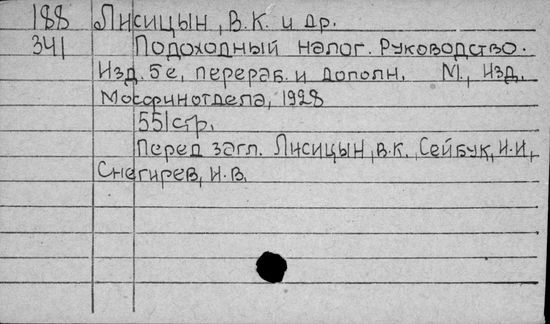 188 Лисицын, В.К. и др.
341 Подоходный налог. Руководство.
Изд. 5е, перераб. и дополн. М., Изд.
Мосфинотдела, 1928
551 стр.
Перед загл. Лисицын, В.К., Сейбук, И.И,
Снегирев, И.В.